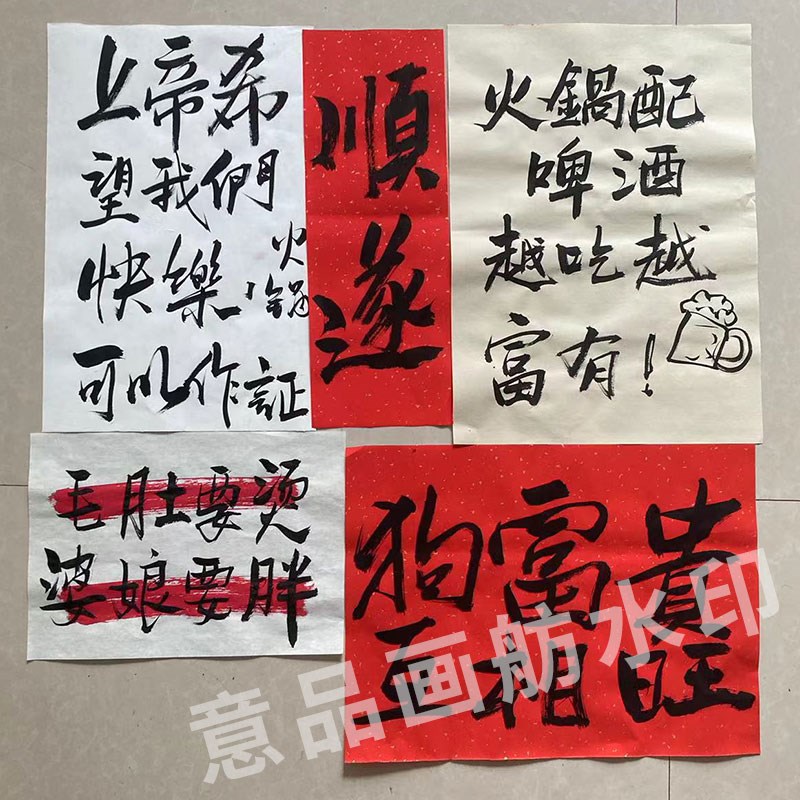 上帝希
望我們
快樂火鍋
可以作証
順
遂
火鍋配
啤酒
越吃越
富有！
毛肚要燙
婆娘要胖
狗富貴
互相旺
意品画舫水印